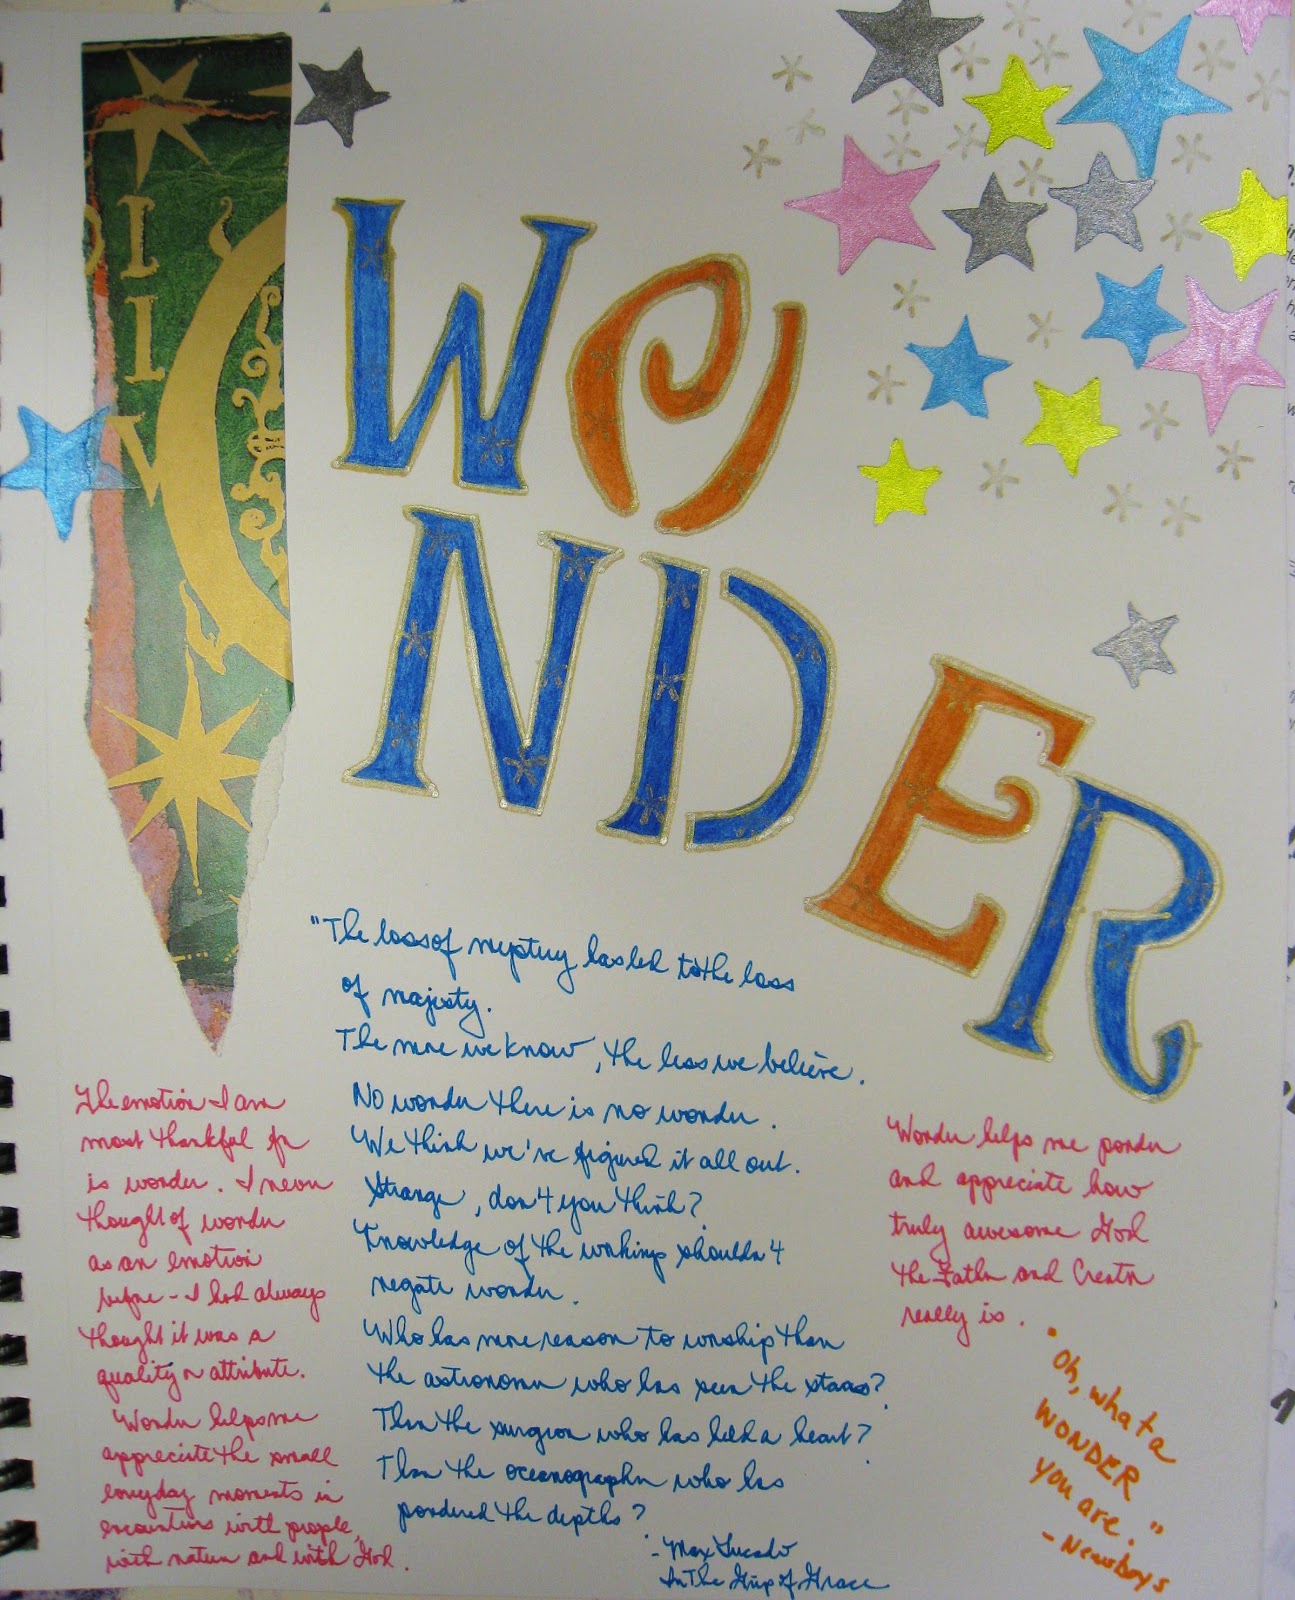 WO
NDER
"The loss of mystery has led to the loss
of majesty.
The more we know, the less we believe.
No wonder there is no wonder.
We think we've figured it all out.
Strange, don't you think?
Knowledge of the workings shouldn't
negate wonder.
Who has more reason to worship than
the astronomer who has seen the stars?
Than the surgeon who has held a heart?
Than the oceanographer who has
pondered the depths?
- Max Lucado
In The Grip of Grace
The emotion I am
most thankful for
is wonder. I never
thought of wonder
as an emotion
before - I had always
thought it was a
quality or attribute.
Wonder helps me
appreciate the small
everyday moments in
encounters with people,
with nature and with God.
Wonder helps me ponder
and appreciate how
truly awesome God
the Father and Creator
really is.
"Oh, what a
WONDER
you are."
- Newsboys